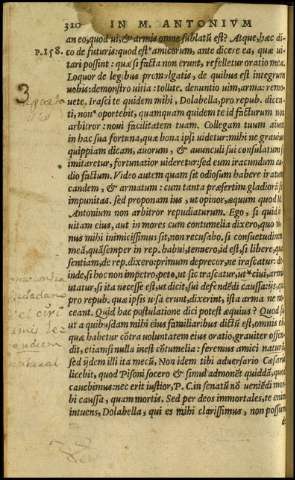 320 IN M. ANTONIVM
an eo, quod ui, & armis omne sublatū est? Atque, hæc di-
P. 158. co de futuris: quod est amicorum, ante dicere ea, quæ ui-
tari possint: quæ si facta non erunt, refelletur oratio mea.
Loquor de legibus promulgatis, de quibus est integrum
uobis: demonstro uitia: tollite. denuntio uim, arma: remo-
uete. Irasci te quidem mihi, Dolabella, pro repub. dicen-
ti, non oportebit, quanquam quidem te id facturum non
arbitror: noui facilitatem tuam. Collegam tuum aiunt
in hac sua fortuna, quæ bona ipsi uidetur: mihi ne grauius
quippiam dicam, auorum, & auunculi sui consulatum si
imitaretur, fortunatior uideretur: sed eum iracundum au-
dio factum. Video autem quam sit odiosum habere iratum
eundem, & armatum: cum tanta præsertim gladiorū sit
impunitas. sed proponam ius, ut opinor, æquum quod M.
Antonium non arbitror repudiaturum. Ego, si quid in
uitam eius, aut in mores cum contumelia dixero, quo mi-
nus mihi inimicissimus sit, non recusabo. si consuetudinem
meā, quā semper in rep. habui, tenuero, id est, si libere, quæ
sentiam, de rep. dixero: primum deprecor, ne irascatur: de-
inde, si hoc non impetro, peto, ut sic irascatur, ut ciui. armis
utatur, si ita necesse est, ut dicit, sui defendēdi caussa: ijs, qui
pro repub. quæ ipsis uisa erunt, dixerint, ista arma ne no-
ceant. Quid hac postulatione dici potest æquius? Quod si,
ut a quibusdam mihi eius familiaribus dictū est, omnis eū,
quæ habetur cōtra uoluntatem eius oratio, grauiter offen-
dit, etiam si nulla inest cōtumelia: feremus amici naturā.
sed ijdem illi ita mecū, Non idem tibi aduersario Cæsaris
licebit, quod Pisoni socero & simul admonēt quiddā, quod
cauebimus: nec erit iustior, P. C. in senatū nō ueniēdi mor-
bi caussa, quam mortis. Sed per deos immortales, te enim
intuens, Dolabella, qui es mihi clarissimus, non possum